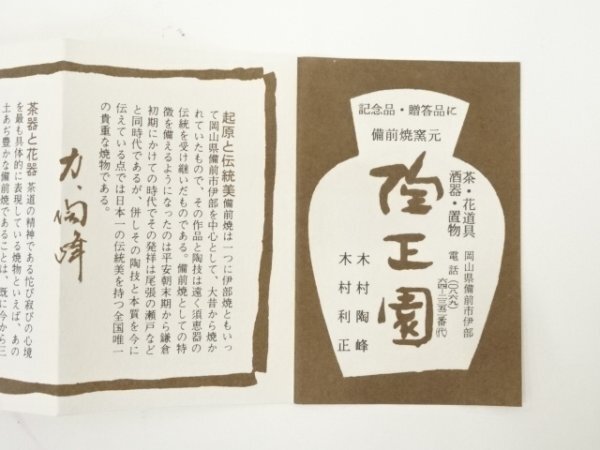 記念品・贈答品に
備前焼窯元
茶・花道具
酒器・置物
陶正園
岡山県備前市伊部
電話(〇八六九)
木村陶峰
木村利正
起原と伝統美 備前焼は一つに伊部焼ともいっ
て岡山県備前市伊部を中心として、大昔から焼か
れていたもので、その作品と陶技は遠く須恵器の
伝統を受け継いだものである。備前焼としての特
徴を備えるようになったのは平安朝末期から鎌倉
初期にかけての時代でその発祥は尾張の瀬戸など
と同時代であるが、併しその陶技と本質を今に
伝えている点では日本一の伝統美を持つ全国唯一
の貴重な焼物である。
陶峰
茶器と花器 茶道の精神である佗び寂びの心境
を最も具体的に表現している焼物といえば、あの
土あぢ豊かな備前焼であることは、既に今から三